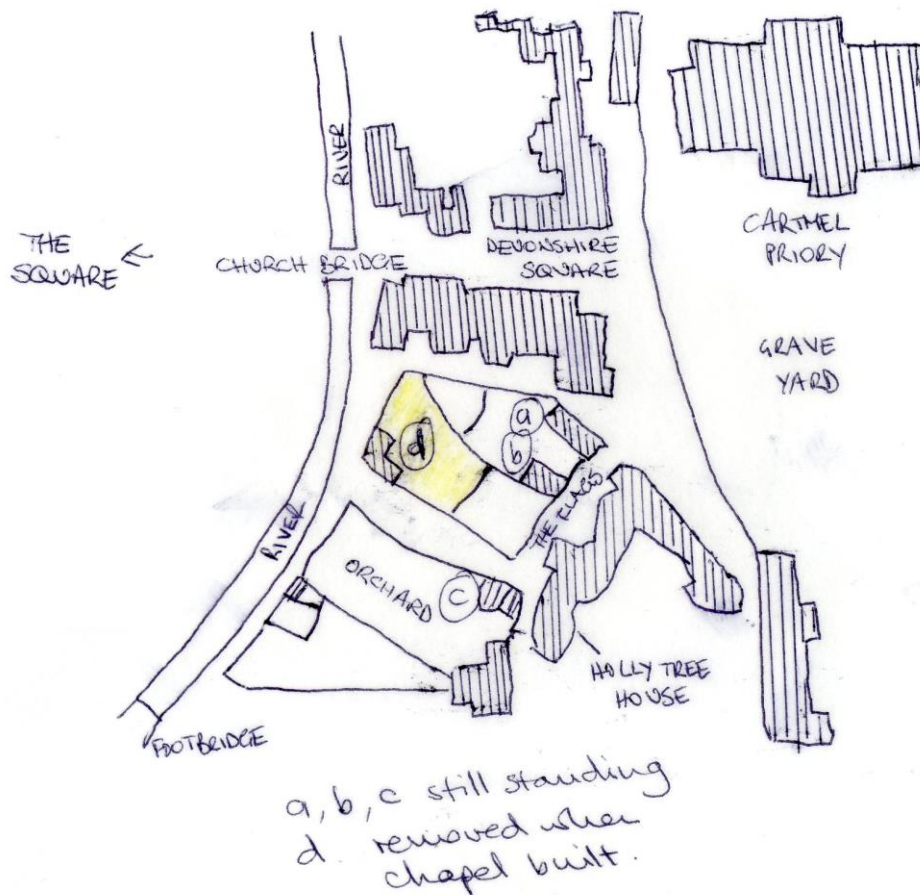 RIVER
THE
SQUARE
CHURCH BRIDGE
DEVONSHIRE
SQUARE
CARTMEL
PRIORY
GRAVE
YARD
a
b
d
THE FLAGS
RIVER
ORCHARD
c
HOLLY TREE
HOUSE
FOOTBRIDGE
a, b, c still standing
d. removed when
chapel built.